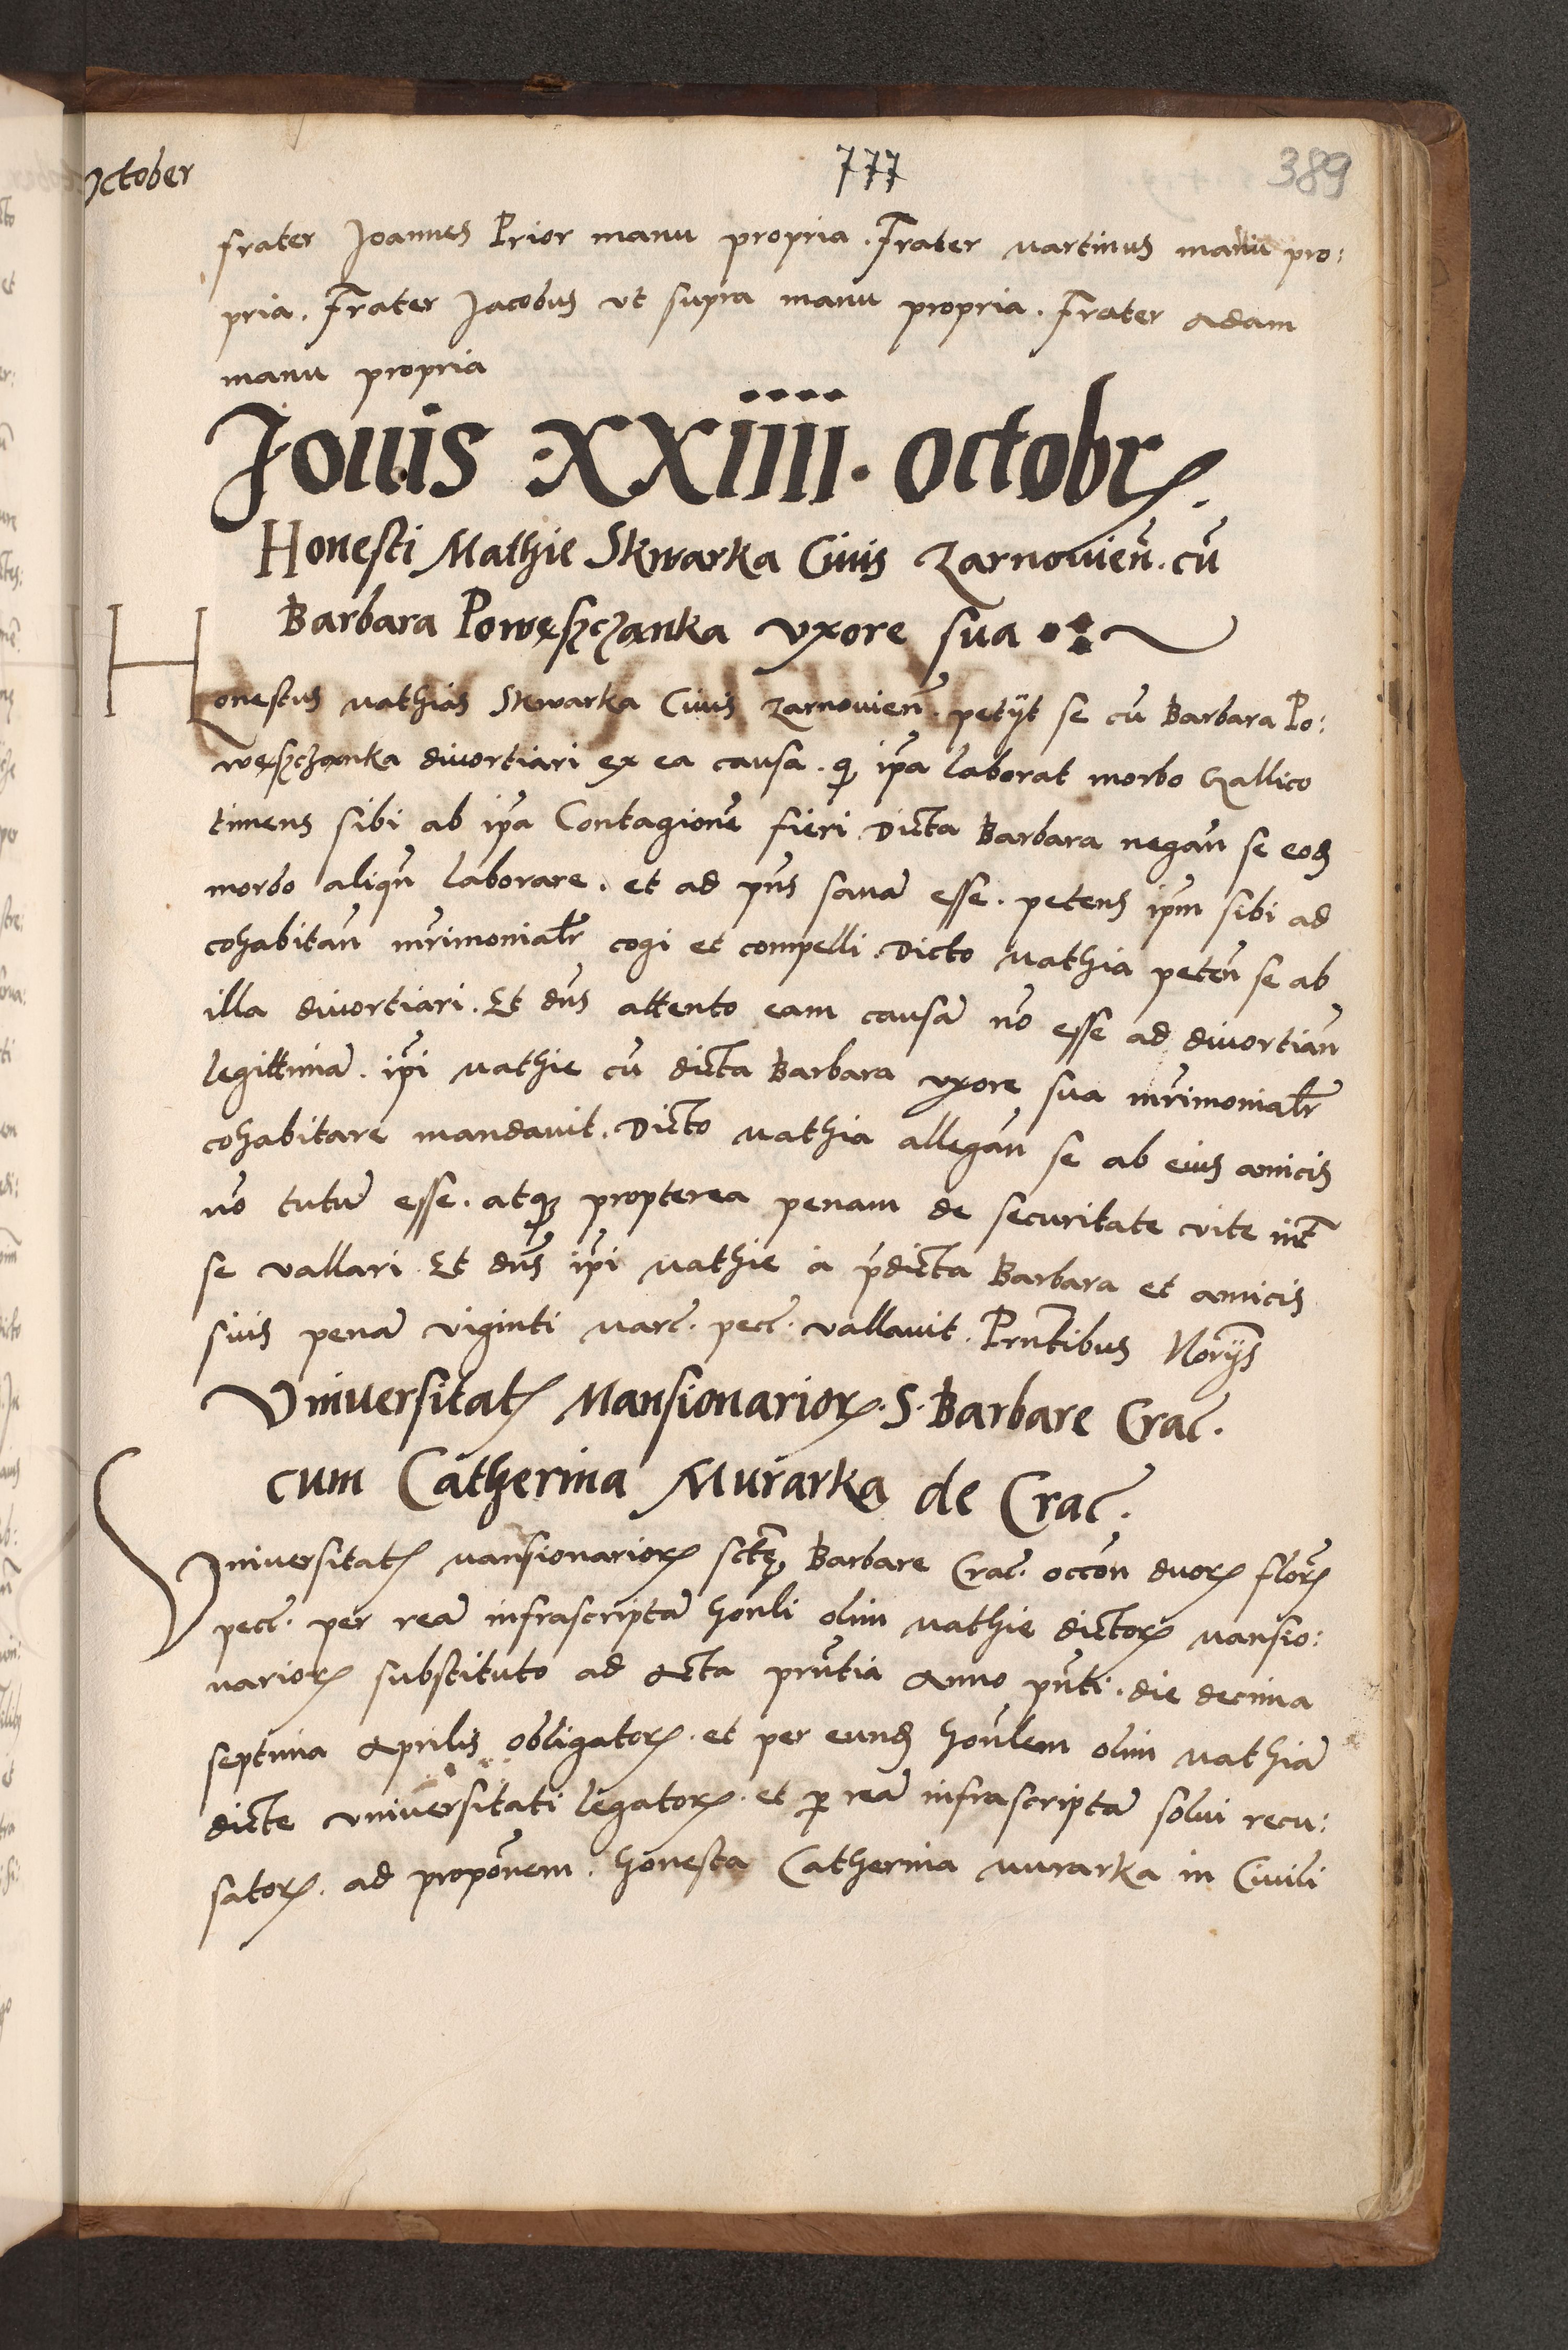 October
777
389
frater Joannes Prior manu propria. Frater Martinus manu pro:
pria. Frater Jacobus ut supra manu propria. Frater Adam
manu propria
Jouis XXiiii. octobrꝭ.
Honesti Mathie Skwarka Ciuis Zarnouien̄. cū
Barbara Powęszczanka vxore sua
Honestus Mathias Skwarka Ciuis Zarnouien̄. petijt se cū Barbara Po:
węszczanka diuortiari ex ea causa. ꝙ ip̄a laborat morbo Gallico
timens sibi ab ip̄a Contagionē fieri. Dicta Barbara negan̄ se eod̄
morbo aliqn̄ laborare. et ad pn̄s sanā esse. petens ip̄m sibi ad
cohabitan̄ mr̄imonialr̄ cogi et compelli. Dicto Mathia peten̄ se ab
illa diuortiari. Et dn̄s attento eam causā nō esse ad diuortian̄
legittimā. ip̄i Mathie cū dicta Barbara vxore sua mr̄imonialr̄
cohabitare mandauit. Dicto Mathia allegan̄ se ab eius amicis
nō tutū esse. atqꝫ propterea penam de securitate vite int̄
se vallari. Et dn̄s ip̄i Mathie a p̄dicta Barbara et amicis
suis penā viginti Marc̄. pec̄. vallauit. Prn̄tibus Norijs
Vniuersitatꝭ Mansionarioꝝ. S. Barbare Crac̄.
cum Catherina Murarka de Crac̄.
Vniuersitatꝭ Mansionarioꝝ sctę Barbare Crac̄. occōn duoꝝ floꝝ
pec̄. per reā infrascriptā honli olim Mathie dictoꝝ Mansio:
narioꝝ substituto ad Acta prn̄tia Anno pn̄ti. die decima
septima Aprilis obligatoꝝ. et per eund̄ honlem olim Mathiā
dicte vniuersitati legatoꝝ. et ꝑ reā infrascriptā solui recu:
satoꝝ. ad propōnem. honesta Catherina Murarka in Ciuili